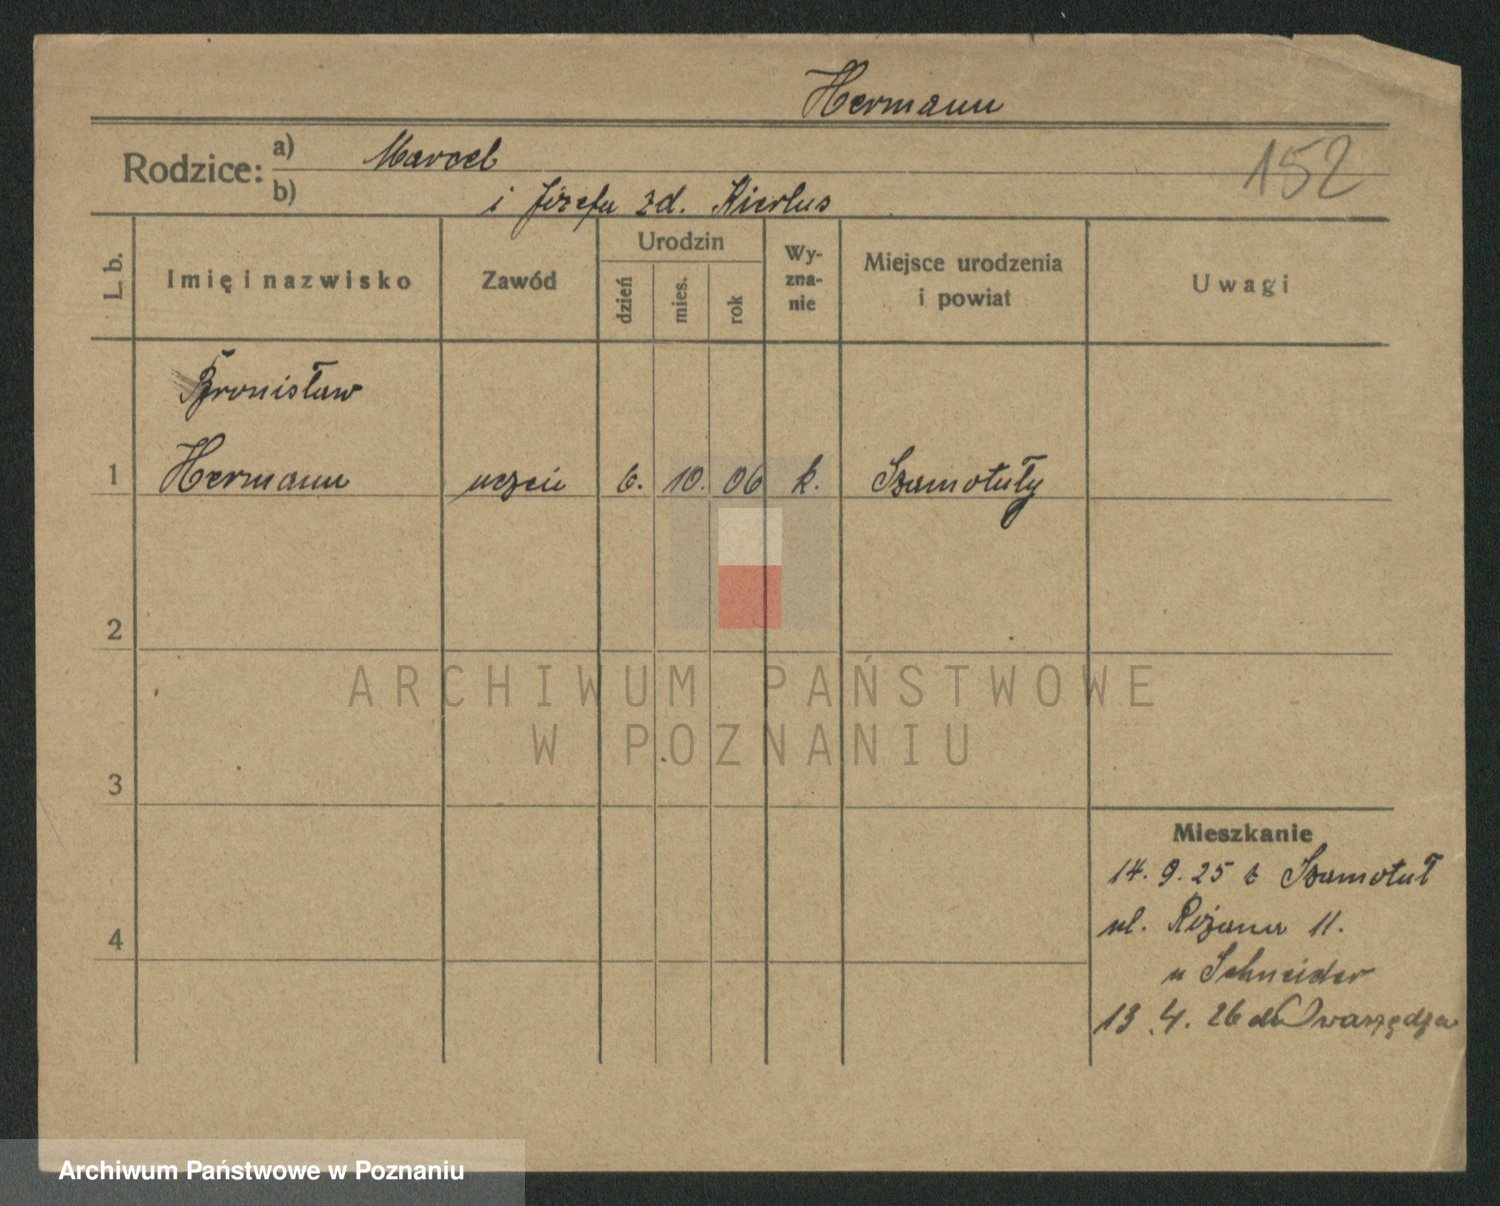 Hermann
152
Rodzice: a) Marcel
b) i Józefa zd. Kierlus
L. b.
Imię i nazwisko
Zawód
Urodzin
dzień
mies.
rok
Wy-
zna-
nie
Miejsce urodzenia
i powiat
Uwagi
Bronisław
1 Hermann uczeń 6. 10. 06 k. Szamotuły
2
3
4
Mieszkanie
14. 9. 25 z Szamotuł
ul. Różana 11.
u Schneider
13. 4. 26 do Swarzędza
ARCHIWUM PAŃSTWOWE
W POZNANIU
Archiwum Państwowe w Poznaniu